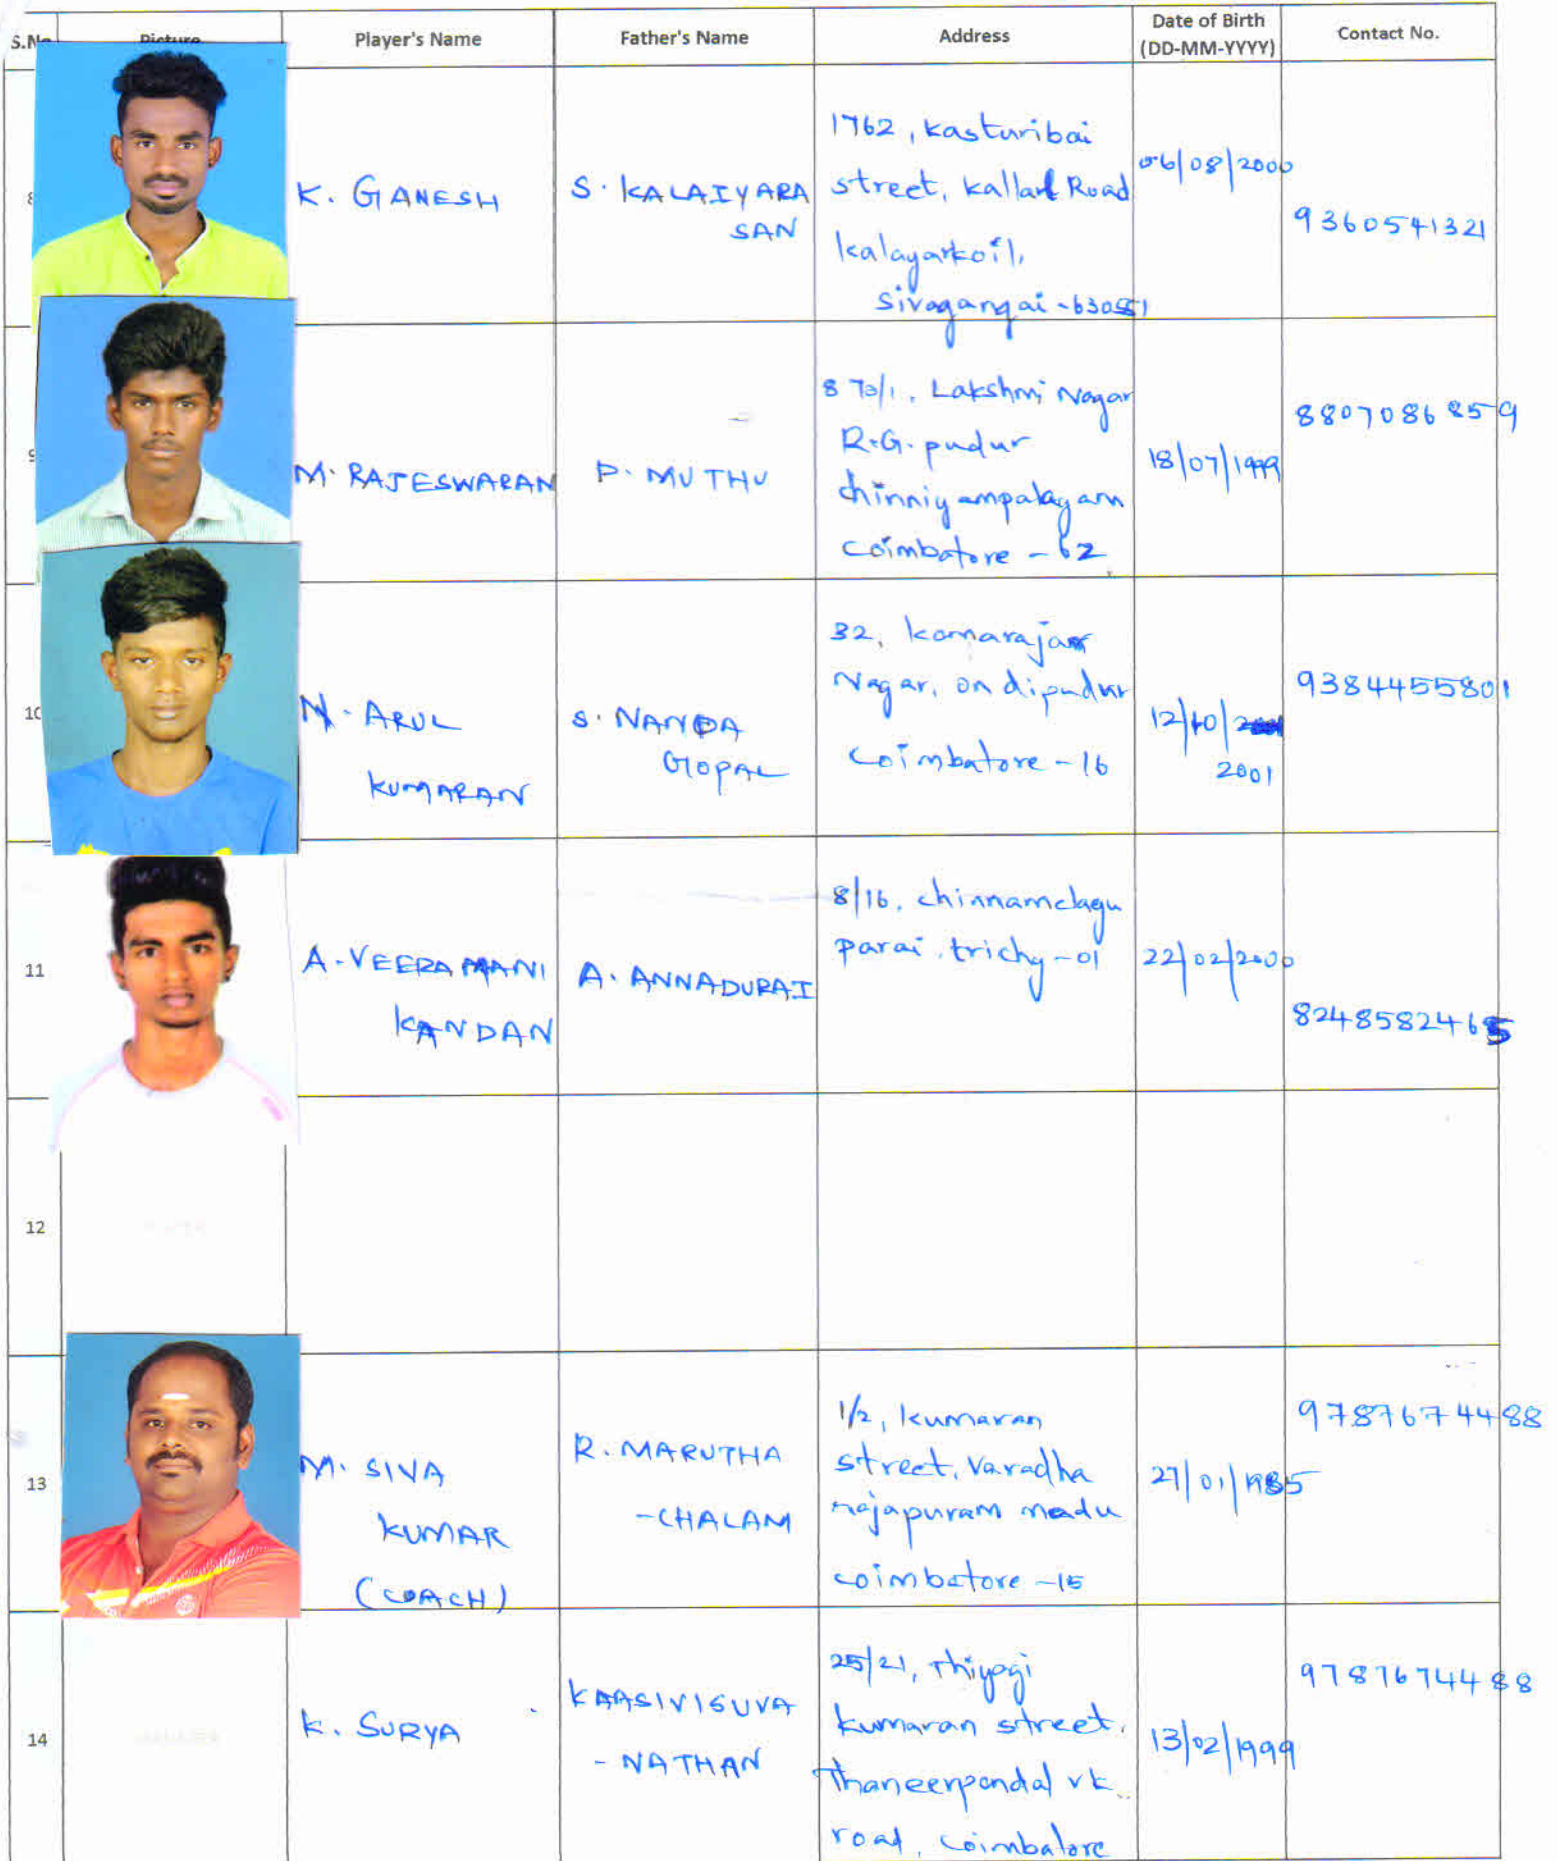 S.No Picture Player's Name Father's Name Address Date of Birth
(DD-MM-YYYY) Contact No.
8
K. GANESH
S. KALAIYARA
SAN
1762, Kasturibai
street, Kallal Road
Kalayarkoil,
Sivagangai -630551
06/08/2000
9360541321
9
M. RAJESWARAN
P. MUTHU
870/1, Lakshmi Nagar
R.G. pudur
chinniyampalayam
coimbatore - 62
18/07/1999
8807086859
10
N. ARUL
KUMARAN
S. NANDA
GOPAL
32, Kamarajar
Nagar, ondipudur
coimbatore - 16
12/10/
2001
9384455801
11
A. VEERAMANI
KANDAN
A. ANNADURAI
8/16, chinnamelagu
parai, trichy - 01
22/02/2000
8248582465
12
13
M. SIVA
KUMAR
(COACH)
R. MARUTHA
-CHALAM
1/2, Kumaran
street, Varadha
rajapuram medu
coimbatore -15
27/01/1985
9787674488
14
K. SURYA
KAASIVISUVA
- NATHAN
25/21, Thiyagi
Kumaran street,
Thaneerpandal vk
road, coimbatore
13/02/1999
9787674488